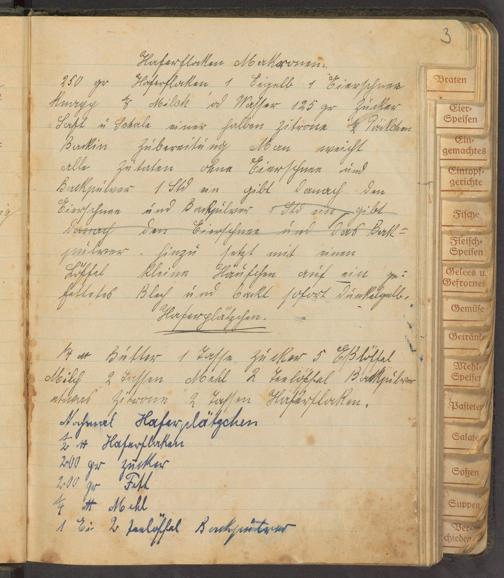 3
Haferflocken Makronen.
250 gr Haferflocken 1 Eigelb 1 Eierschnee
knapp Milch od Wasser 125 gr Zucker
Saft u Schale einer halben Zitrone Päckchen
Backin Zubereitung Man weicht
alle Zutaten ohne Eierschnee und
Backpulver 1 Std ein gibt danach den
Eierschnee und Backpulver Std ein gibt
danach den Eierschnee und das Back-
pulver hinzu setzt mit einem
Löffel kleine Häufchen auf ein ge-
fettetes Blech und backt sofort dunkelgelb.
Haferplätzchen.
Butter 1 Tasse Zucker 5 Eßlöffel
Milch 2 Tassen Mehl 2 Teelöffel Backpulver
etwas Zitrone 2 Tassen Haferflocken.
Nochmal Haferplätzchen
1/2 Haferflocken
200 gr Zucker
200 gr Fett
Mehl
1 Ei 2 Teelöffel Backpulver
Braten
Eier-
Speisen
Ein-
gemachtes
Eintopf-
gerichte
Fische
Fleisch-
Speisen
Gelees u.
Gefrornes
Gemüse
Getränke
Mehl-
Speisen
Pasteten
Salate
Soßen
Suppen
Ver-
schieden